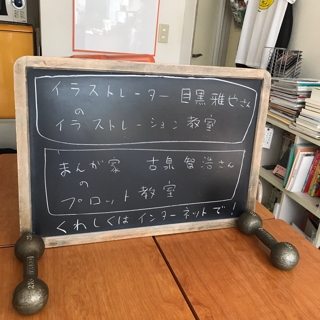 イラストレーター 目黒雅也さん
の
イラストレーション教室
まんが家 古泉智浩さん
の
プロット教室
くわしくはインターネットで!